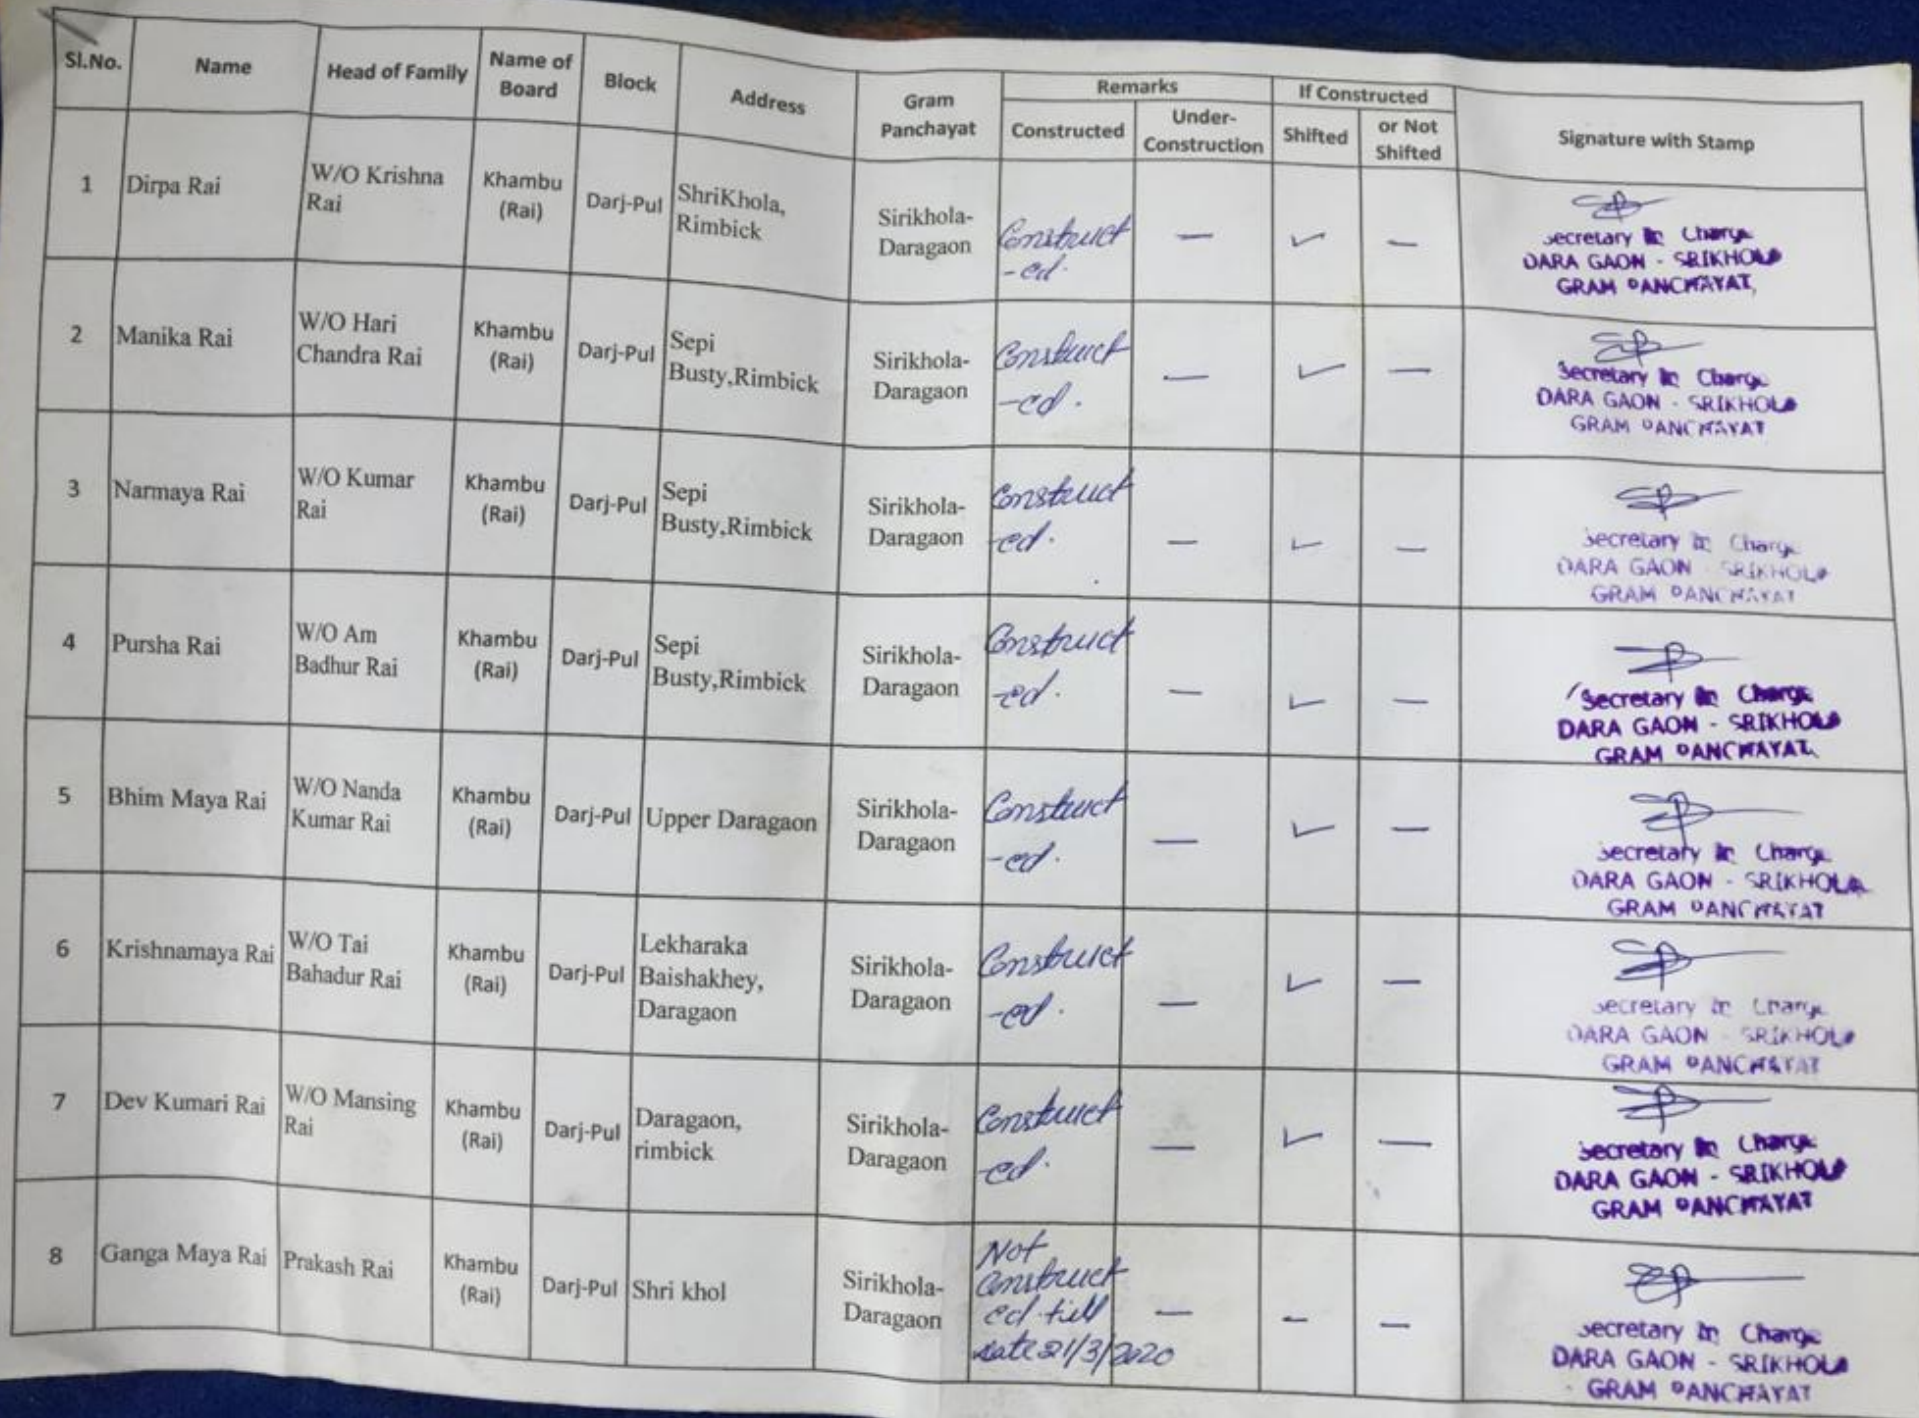 Sl.No. Name Head of Family Name of Board Block Address Gram Panchayat Remarks If Constructed Signature with Stamp
Constructed Under-Construction Shifted or Not Shifted
1 Dirpa Rai W/O Krishna Rai Khambu (Rai) Darj-Pul ShriKhola, Rimbick Sirikhola-Daragaon Construct-ed. — ✓ —
Secretary In Charge
DARA GAON - SRIKHOLA
GRAM PANCHAYAT
2 Manika Rai W/O Hari Chandra Rai Khambu (Rai) Darj-Pul Sepi Busty,Rimbick Sirikhola-Daragaon Construct-ed. — ✓ —
Secretary In Charge
DARA GAON - SRIKHOLA
GRAM PANCHAYAT
3 Narmaya Rai W/O Kumar Rai Khambu (Rai) Darj-Pul Sepi Busty,Rimbick Sirikhola-Daragaon Construct-ed. — ✓ —
Secretary In Charge
DARA GAON - SRIKHOLA
GRAM PANCHAYAT
4 Pursha Rai W/O Am Badhur Rai Khambu (Rai) Darj-Pul Sepi Busty,Rimbick Sirikhola-Daragaon Construct-ed. — ✓ —
Secretary In Charge
DARA GAON - SRIKHOLA
GRAM PANCHAYAT
5 Bhim Maya Rai W/O Nanda Kumar Rai Khambu (Rai) Darj-Pul Upper Daragaon Sirikhola-Daragaon Construct-ed. — ✓ —
Secretary In Charge
DARA GAON - SRIKHOLA
GRAM PANCHAYAT
6 Krishnamaya Rai W/O Tai Bahadur Rai Khambu (Rai) Darj-Pul Lekharaka Baishakhey, Daragaon Sirikhola-Daragaon Construct-ed. — ✓ —
Secretary In Charge
DARA GAON - SRIKHOLA
GRAM PANCHAYAT
7 Dev Kumari Rai W/O Mansing Rai Khambu (Rai) Darj-Pul Daragaon, rimbick Sirikhola-Daragaon Construct-ed. — ✓ —
Secretary In Charge
DARA GAON - SRIKHOLA
GRAM PANCHAYAT
8 Ganga Maya Rai Prakash Rai Khambu (Rai) Darj-Pul Shri khol Sirikhola-Daragaon Not Constructed till date 21/3/2020 — — —
Secretary In Charge
DARA GAON - SRIKHOLA
GRAM PANCHAYAT